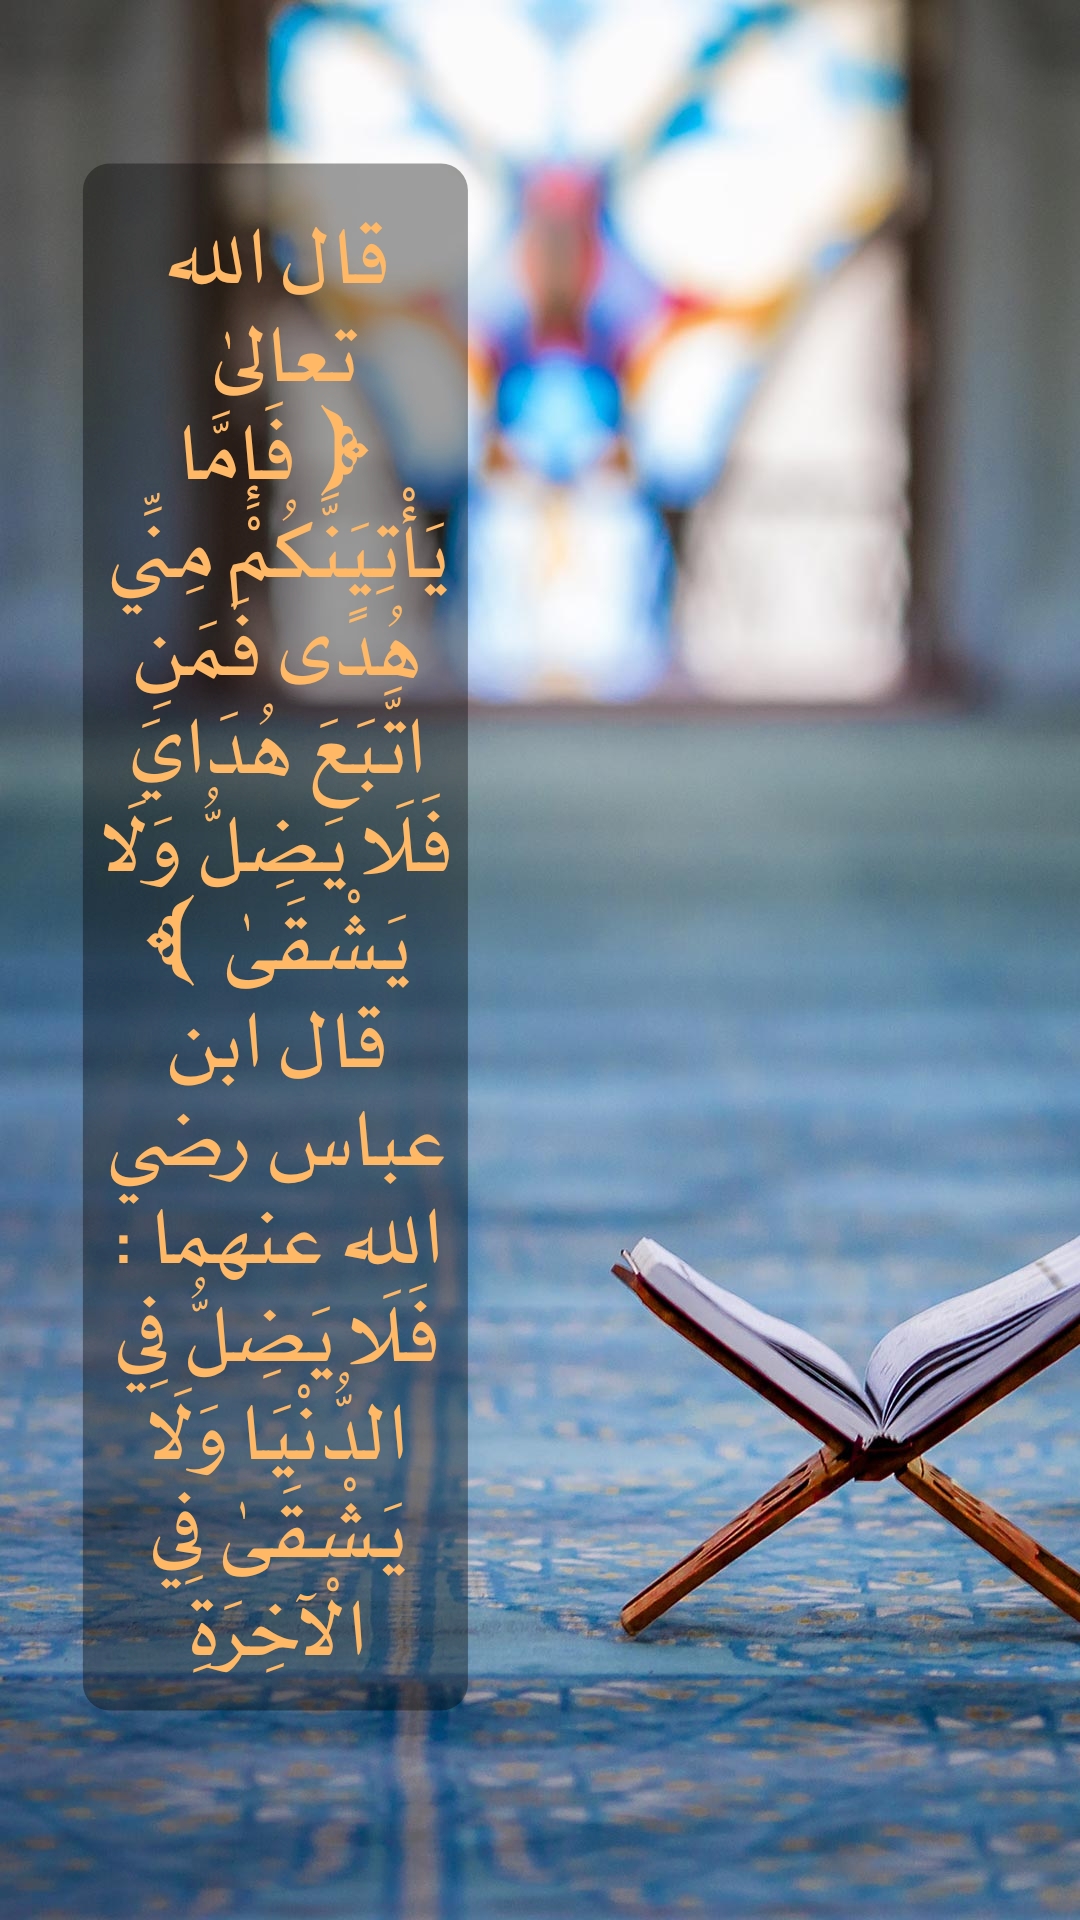 قال الله
تعالىٰ
﴿ فَإِمَّا
يَأْتِيَنَّكُمْ مِنِّي
هُدًى فَمَنِ
اتَّبَعَ هُدَايَ
فَلَا يَضِلُّ وَلَا
يَشْقَىٰ ﴾
قال ابن
عباس رضي
الله عنهما :
فَلَا يَضِلُّ فِي
الدُّنْيَا وَلَا
يَشْقَىٰ فِي
الْآخِرَةِ